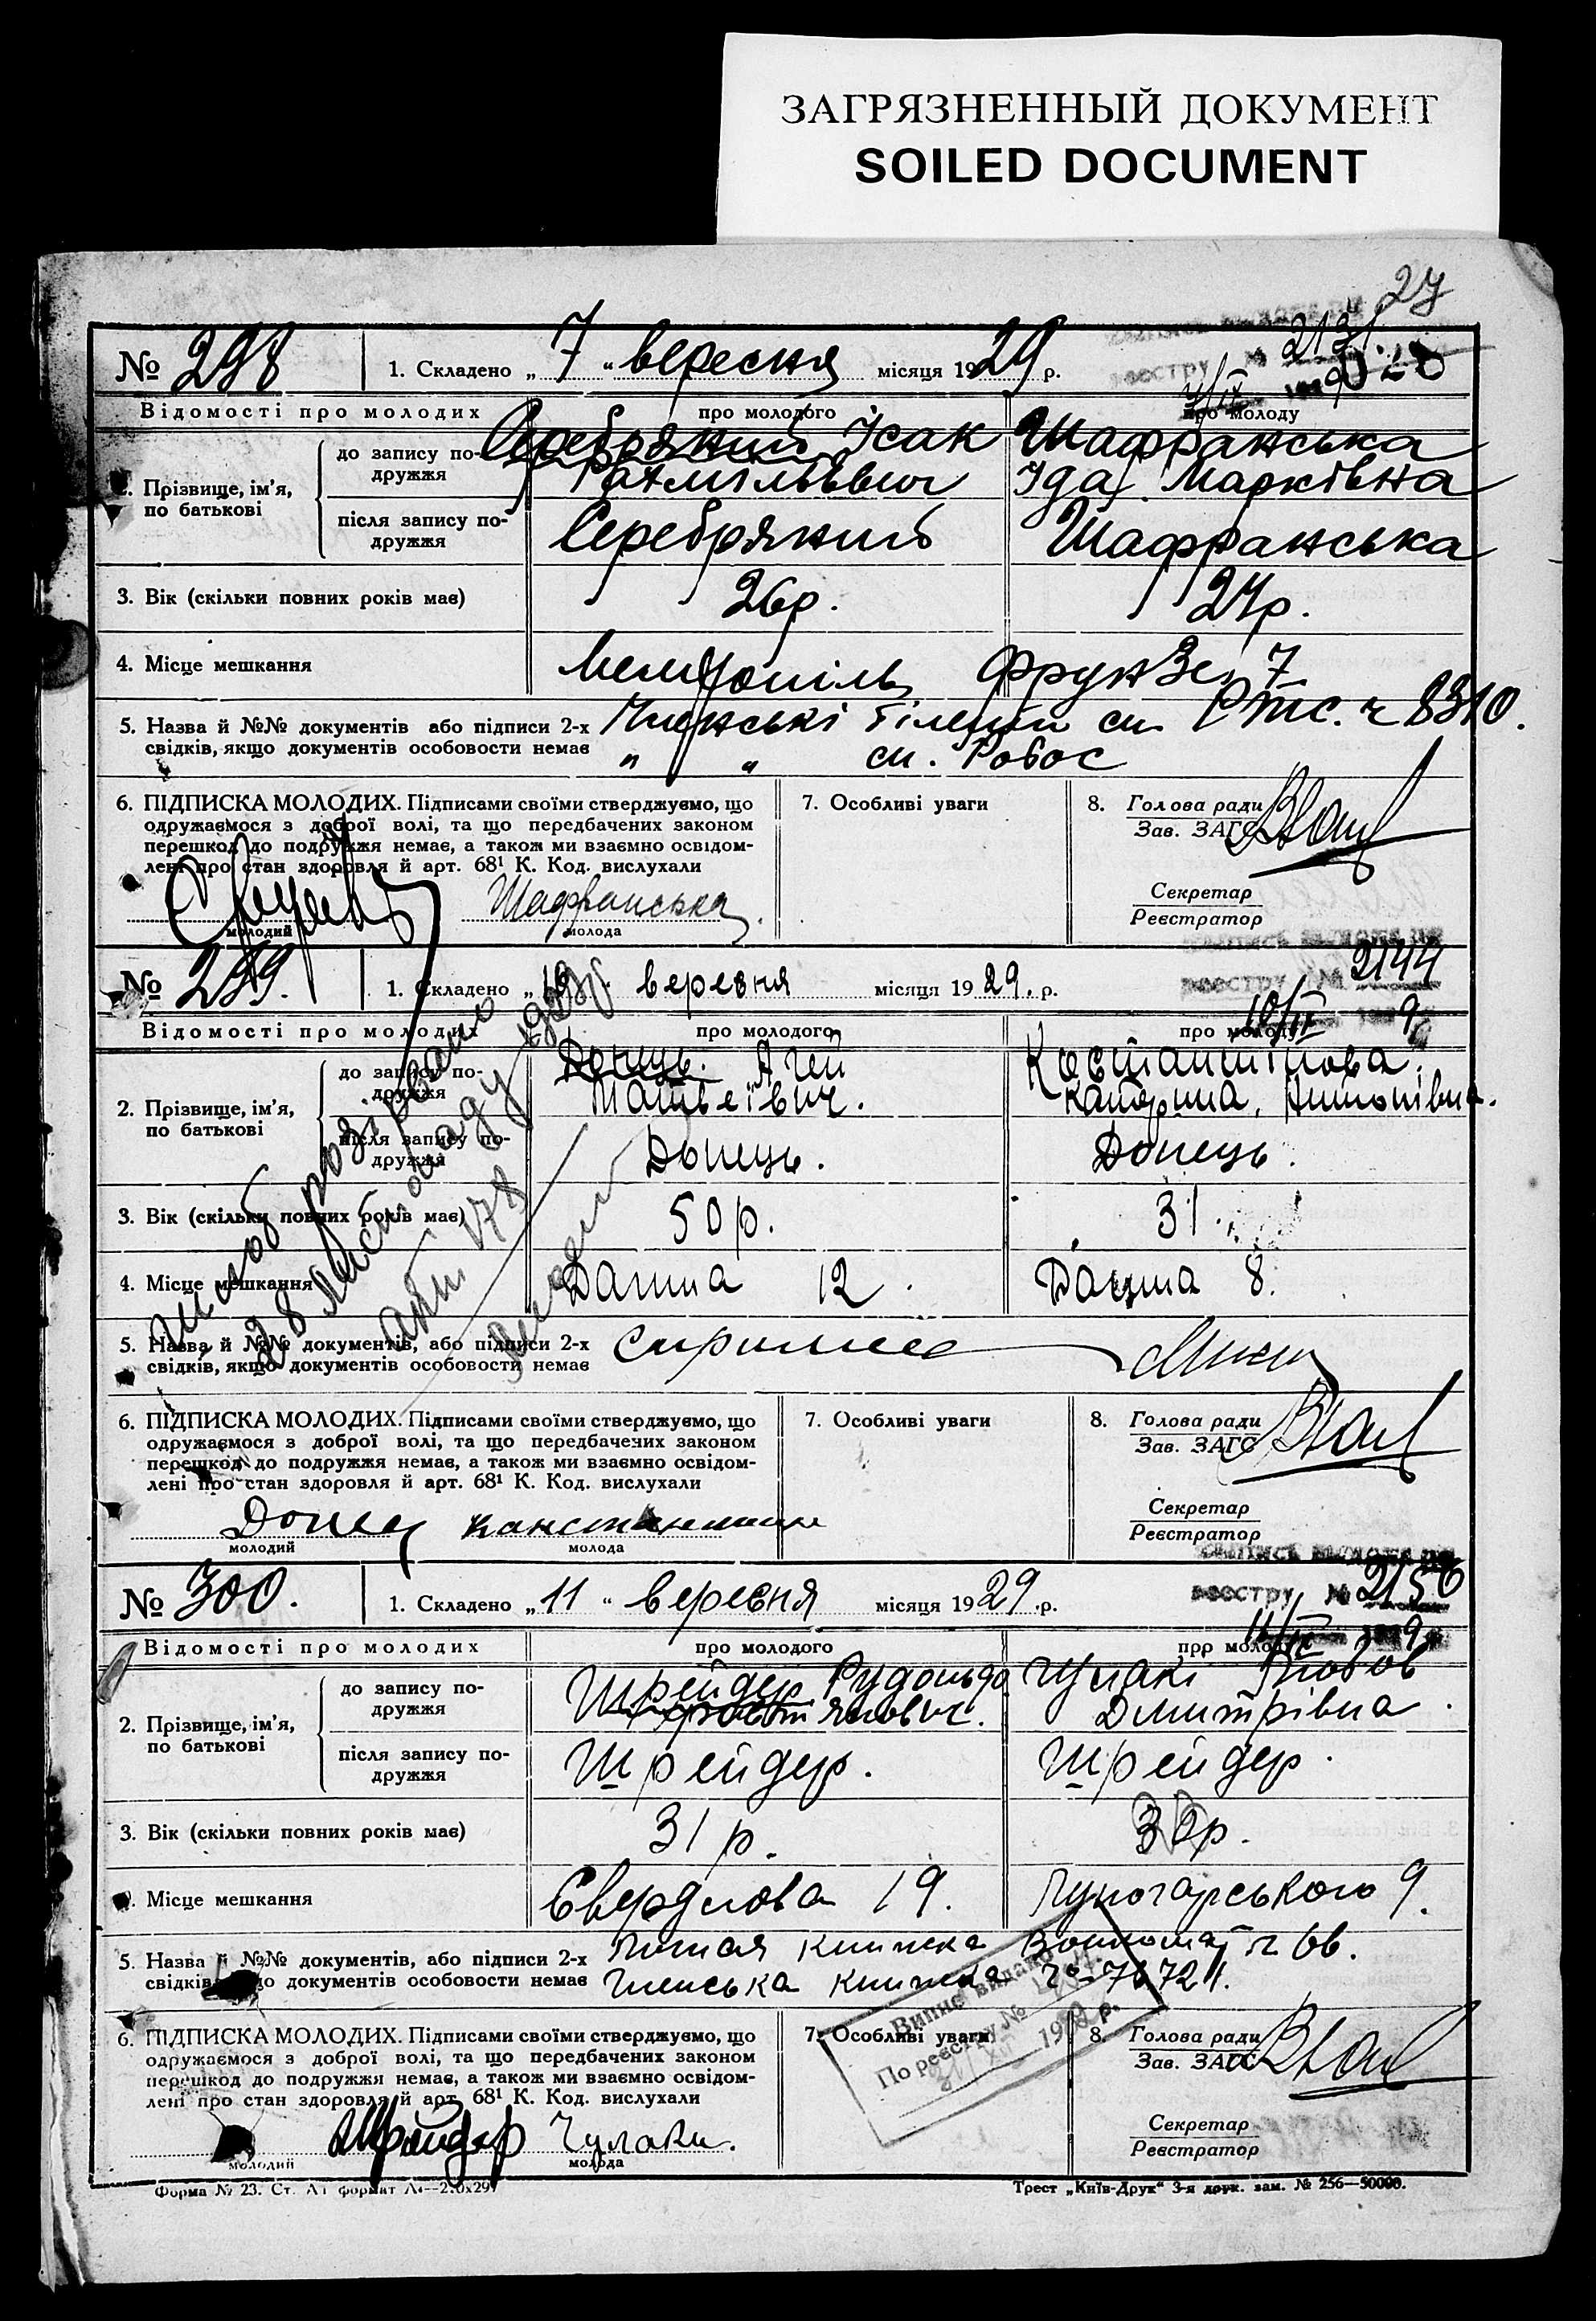 ЗАГРЯЗНЕННЫЙ ДОКУМЕНТ
SOILED DOCUMENT
27
№ 298
1. Складено „ 7 “ вересня місяця 1929 р.
реестру № 2131
Відомості про молодих
про молодого
про молоду
2. Прізвище, ім’я, по батькові
до запису подружжя
Серебряний Ісак
Шафранська
Іда Марківна
після запису подружжя
Серебряний
Шафранська
3. Вік (скільки повних років має)
26р.
27р.
4. Місце мешкання
Мелітопіль Фрунзе 7
5. Назва й №№ документів або підписи 2-х
свідків, якщо документів особовости немає
Членські білети см. РТС. № 8310.
„ „ см. Робос
6. ПІДПИСКА МОЛОДИХ. Підписами своїми стверджуємо, що
одружаємося з доброї волі, та що передбачених законом
перешкод до подружжя немає, а також ми взаємно освідом-
лені про стан здоровля й арт. 68¹ К. Код. вислухали
7. Особливі уваги
8. Голова ради
Зав. ЗАГС
Секретар
Реєстратор
Шафранська
молодий
молода
№ 299.
1. Складено „ 10 “ вересня місяця 1929. р.
реестру № 2144
10/IX
Відомості про молодих
про молодого
про молоду
2. Прізвище, ім’я, по батькові
до запису подружжя
Донець. Агей
Матвеївич.
Костантінова.
Катерина, Антонівна.
після запису подружжя
Донець.
Донець.
3. Вік (скільки повних років має)
50р.
31.
4. Місце мешкання
Даніла 12
8.
шлюб розірвано
28 листопаду
5. Назва й №№ документів, або підписи 2-х
свідків, якщо документів особовости немає
6. ПІДПИСКА МОЛОДИХ. Підписами своїми стверджуємо, що
одружаємося з доброї волі, та що передбачених законом
перешкод до подружжя немає, а також ми взаємно освідом-
лені про стан здоровля й арт. 68¹ К. Код. вислухали
7. Особливі уваги
8. Голова ради
Зав. ЗАГС
Секретар
Реєстратор
Донец
молодий
молода
№ 300.
1. Складено „ 11 “ вересня місяця 1929 .р.
реестру № 2156
Відомості про молодих
про молодого
про молоду
2. Прізвище, ім’я, по батькові
до запису подружжя
Шрейдер Рудольф
Чулакі Любов
Дмитрівна
після запису подружжя
Шрейдер.
Шрейдер.
3. Вік (скільки повних років має)
31 р.
30р.
4. Місце мешкання
Свердлова 19.
Луночарського 9.
5. Назва й №№ документів, або підписи 2-х
свідків, якщо документів особовости немає
книжка № 66.
Членська книжка № 76724.
6. ПІДПИСКА МОЛОДИХ. Підписами своїми стверджуємо, що
одружаємося з доброї волі, та що передбачених законом
перешкод до подружжя немає, а також ми взаємно освідом-
лені про стан здоровля й арт. 68¹ К. Код. вислухали
7. Особливі уваги
Випис видано
По реєстру №
8. Голова ради
Зав. ЗАГС
Секретар
Реєстратор
Шрейдер
Чулаки.
молодий
молода
Форма № 23.
Трест „Київ-Друк“ 3-я друк. зам. № 256—50000.